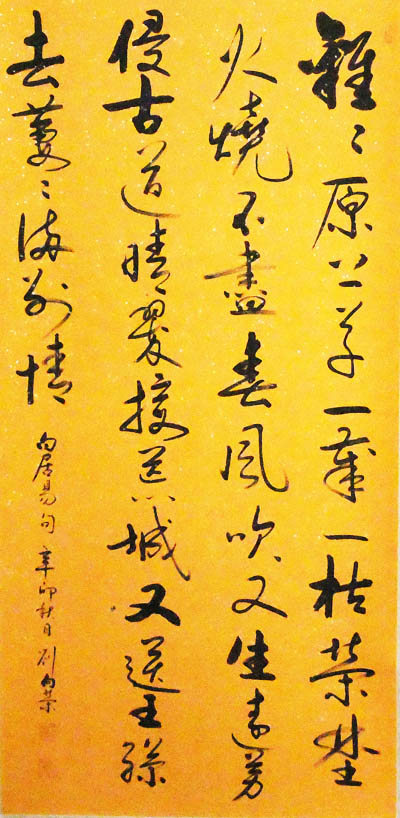 離〻原上草一歲一枯榮埜
火燒不盡春風吹又生遠芳
侵古道晴翠接荒城又送王孫
去萋〻滿別情
白居易句 辛卯秋日 刘荣